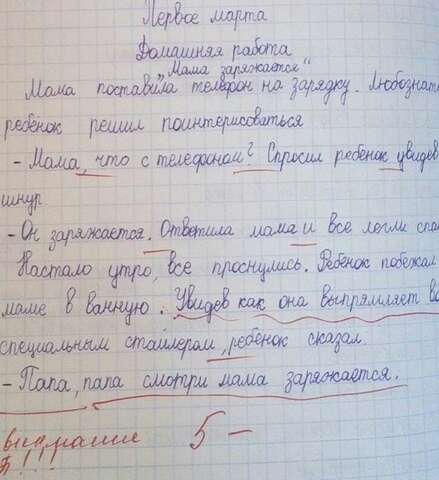 Первое марта
Домашняя работа
"Мама заряжается"
Мама поставила телефон на зарядку. Любознат
ребёнок решил поинтерисоваться
- Мама, что с телефоном? Спросил ребёнок увидев
шнур
- Он заряжается. Ответила мама и все легли спа
Настало утро, все проснулись. Ребёнок побежал
маме в ванную. Увидев как она выпрямляет во
специальным стайлерам, ребёнок сказал.
- Папа, папа смотри мама заряжается.
5-